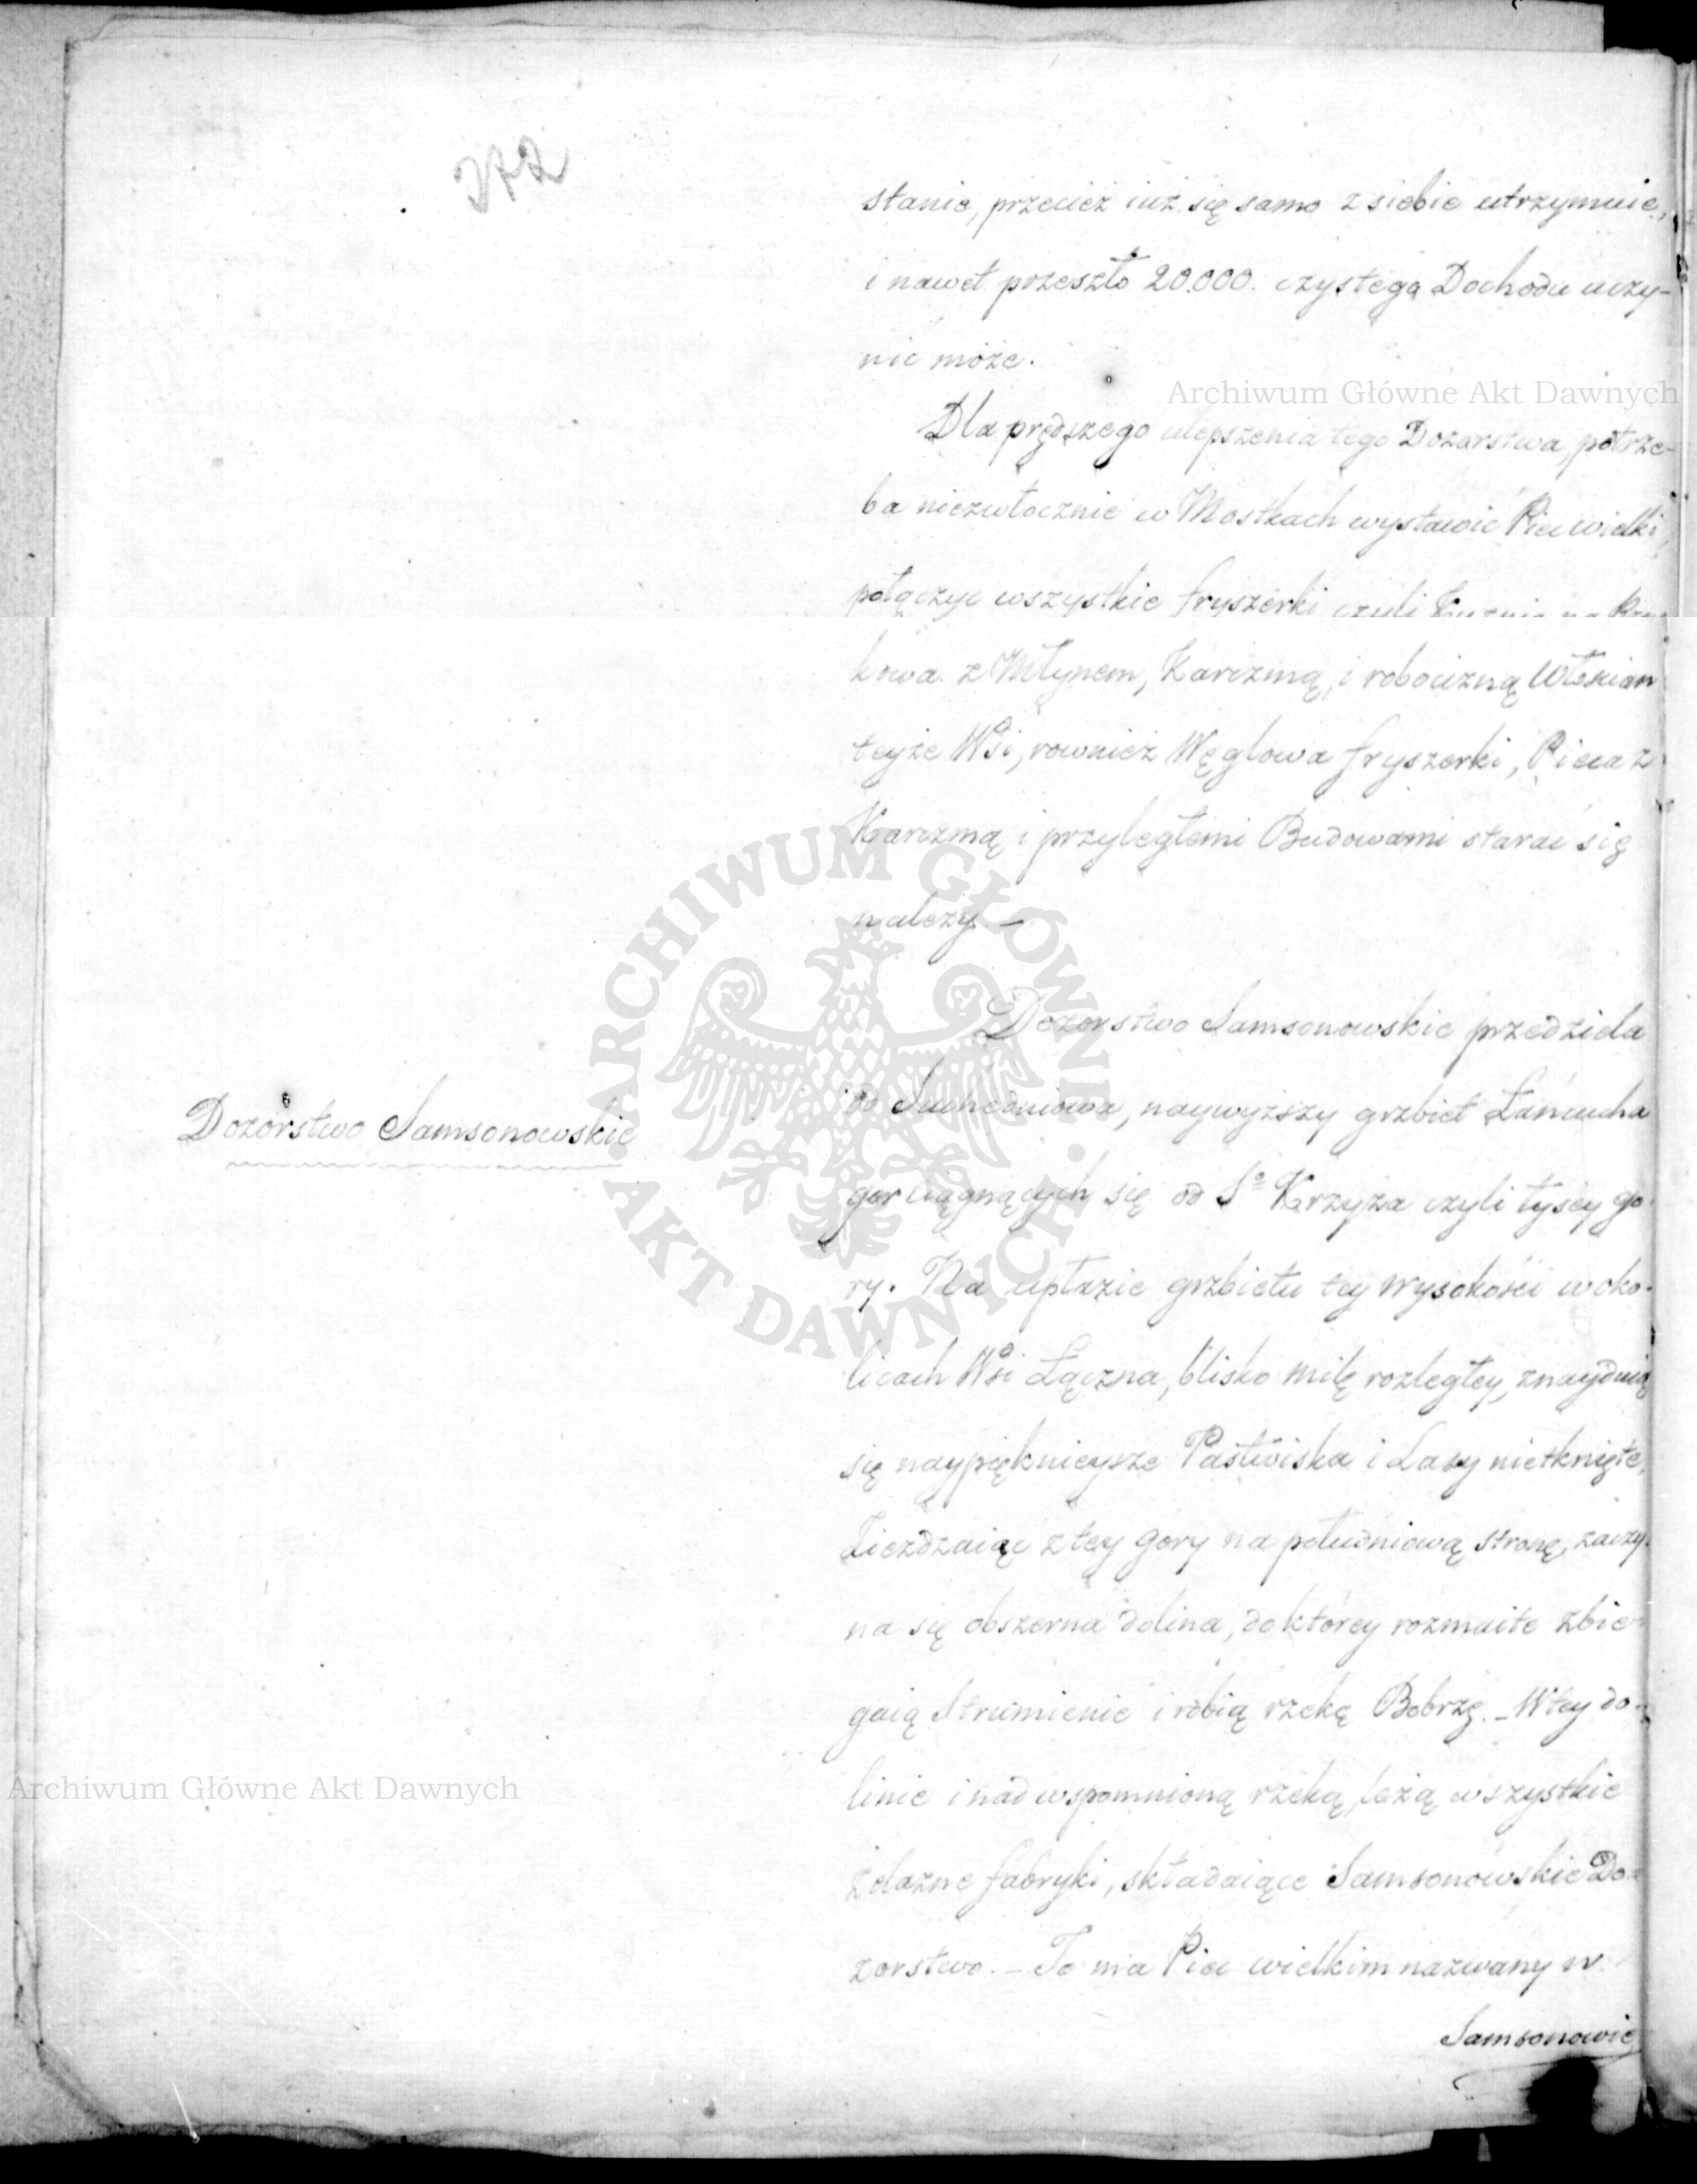 272
stanie, przecież iuż się samo z siebie utrzymuie,
i nawet przeszło 20.000. czystego Dochodu uczy-
nić może.
Archiwum Główne Akt Dawnych
Dla prędszego ulepszenia tego Dozorstwa, potrze-
ba niezwłocznie w Mostkach wystawić Piec wielki,
połączyc wszystkie fryszerki czyli Kuznie na
kowa z Młynem, Karczmą, i robocizną Włoscian
teyże Wsi, rownież Węglowa fryszerki, Pieca z
Karczmą i przyległemi Budowami starać się
należy. —
Dozorstwo Samsonowskie
Dozorstwo Samsonowskie przedziela
od Suchedniowa, naywyższy grzbiet Łańcucha
gor ciągnących się od Sº Krzyża czyli łysey go-
ry. Na upłazie grzbietu tey wysokości w oko-
licach Wsi Łączna, blisko milę rozległey, znayduią
się naypięknieysze Pastwiska i Lasy nietknięte,
Ziezdzaiąc z tey gory na południową stronę, zaczy-
na się obszerna dolina, do ktorey rozmaite zbie-
gaią Strumienie i robią rzekę Bobrzę. – W tey do-
linie i nad wspomnioną rzeką, leżą wszystkie
Żelazne fabryki, składaiące Samsonowskie Do-
zorstwo. – To ma Piec wielkim nazwany w
Samsonowie
ARCHIWUM GŁÓWNE AKT DAWNYCH
Archiwum Główne Akt Dawnych